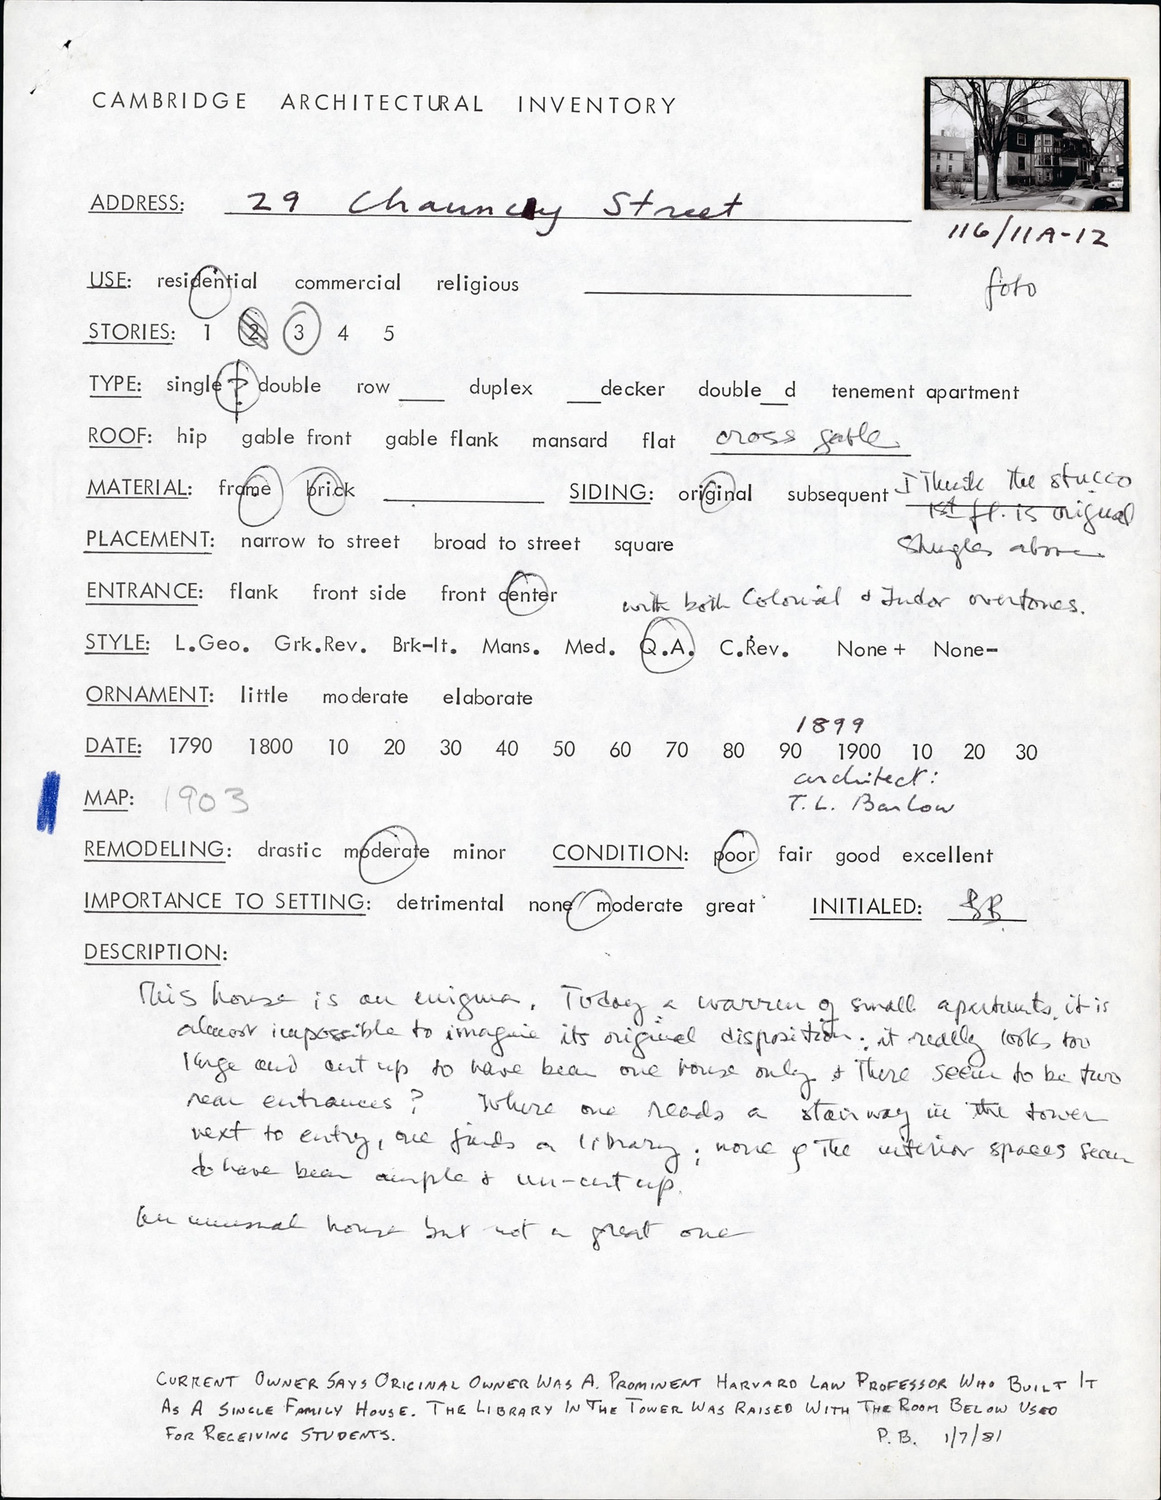 CAMBRIDGE ARCHITECTURAL INVENTORY
ADDRESS: 29 Chauncy Street
116/11A-12
foto
USE: residential commercial religious
STORIES: 1 2 3 4 5
TYPE: single ? double row ___ duplex ___decker double__d tenement apartment
ROOF: hip gable front gable flank mansard flat cross gable
MATERIAL: frame brick SIDING: original subsequent I Think the stucco
1st fl. is original
Shingles above
PLACEMENT: narrow to street broad to street square
ENTRANCE: flank front side front center
with both Colonial & Tudor overtones.
STYLE: L.Geo. Grk.Rev. Brk-It. Mans. Med. Q.A. C.Rev. None+ None-
ORNAMENT: little moderate elaborate
1899
DATE: 1790 1800 10 20 30 40 50 60 70 80 90 1900 10 20 30
architect:
MAP: 1903 T.L. Barlow
REMODELING: drastic moderate minor CONDITION: poor fair good excellent
IMPORTANCE TO SETTING: detrimental none moderate great INITIALED:
DESCRIPTION:
This house is an enigma. Today a warren of small apartments, it is
almost impossible to imagine its original disposition; it really looks too
large and cut up to have been one house only & there seem to be two
rear entrances? Where one reads a stairway in the tower
next to entry, one finds a library; none of the interior spaces seem
to have been ample & un-cut up.
An unusual house but not a great one
CURRENT OWNER SAYS ORIGINAL OWNER WAS A PROMINENT HARVARD LAW PROFESSOR WHO BUILT IT
AS A SINGLE FAMILY HOUSE. THE LIBRARY IN THE TOWER WAS RAISED WITH THE ROOM BELOW USED
FOR RECEIVING STUDENTS. P.B. 1/7/81